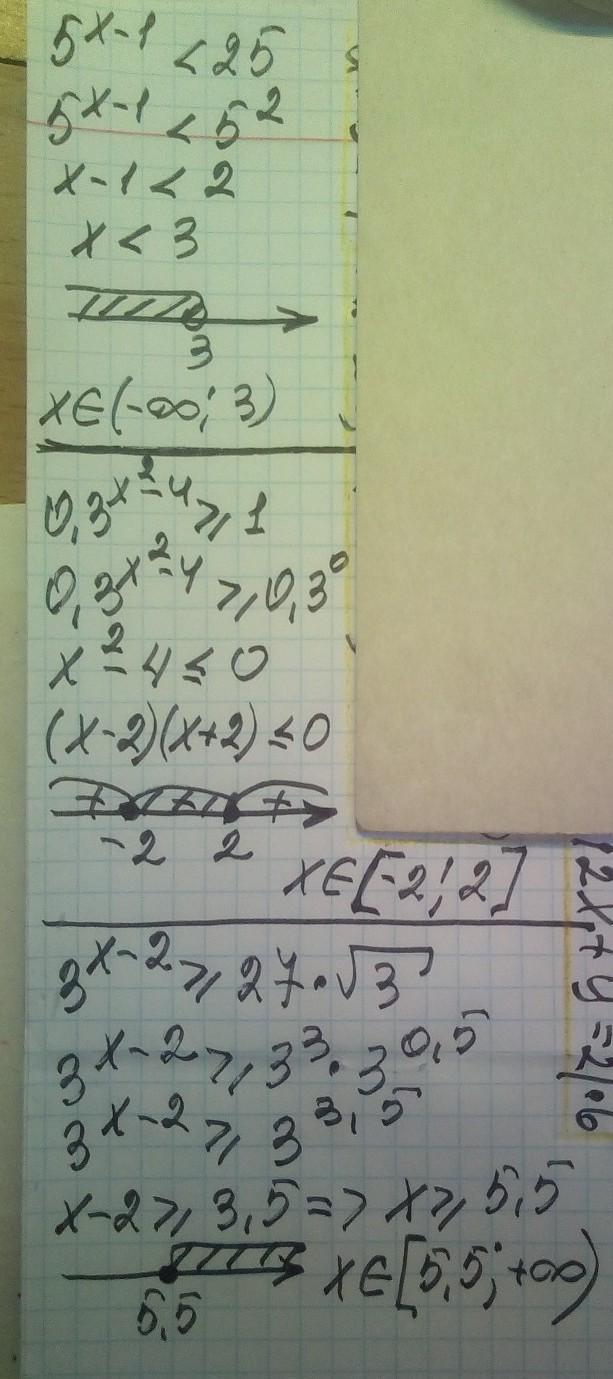 5^{x-1} < 25
5^{x-1} < 5^2
x-1 < 2
x < 3
3
x∈(-∞; 3)
0,3^{x^2-4} ⩾ 1
0,3^{x^2-4} ⩾ 0,3^0
x^2-4 ≤ 0
(x-2)(x+2) ≤ 0
+ +
-2 2
x∈[-2; 2]
3^{x-2} ⩾ 27·√3
3^{x-2} ⩾ 3^3·3^{0,5}
3^{x-2} ⩾ 3^{3,5}
x-2 ⩾ 3,5 => x ⩾ 5,5
5,5
x∈[5,5; +∞)
2x+y=2